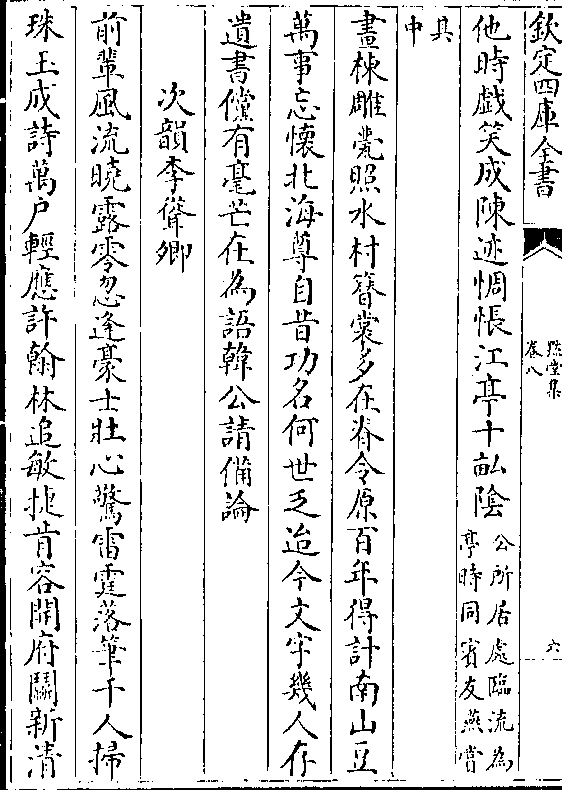 欽定四庫全書
卷八
六
他時戲笑成陳迹惆悵江亭十畝陰公所居處臨流為亭時同賓友燕嘗
其中
畫棟雕甍照水村簪裳多在脊令原百年得計南山豆
萬事忘懷北海尊自昔功名何世乏迨今文字幾人存
遺書儻有毫芒在為語韓公請備論
次韻李聳卿
前輩風流曉露零忽逢豪士壯心驚雷霆落筆千人掃
珠玉成詩萬户輕應許翰林追敏捷肯容開府鬭新清